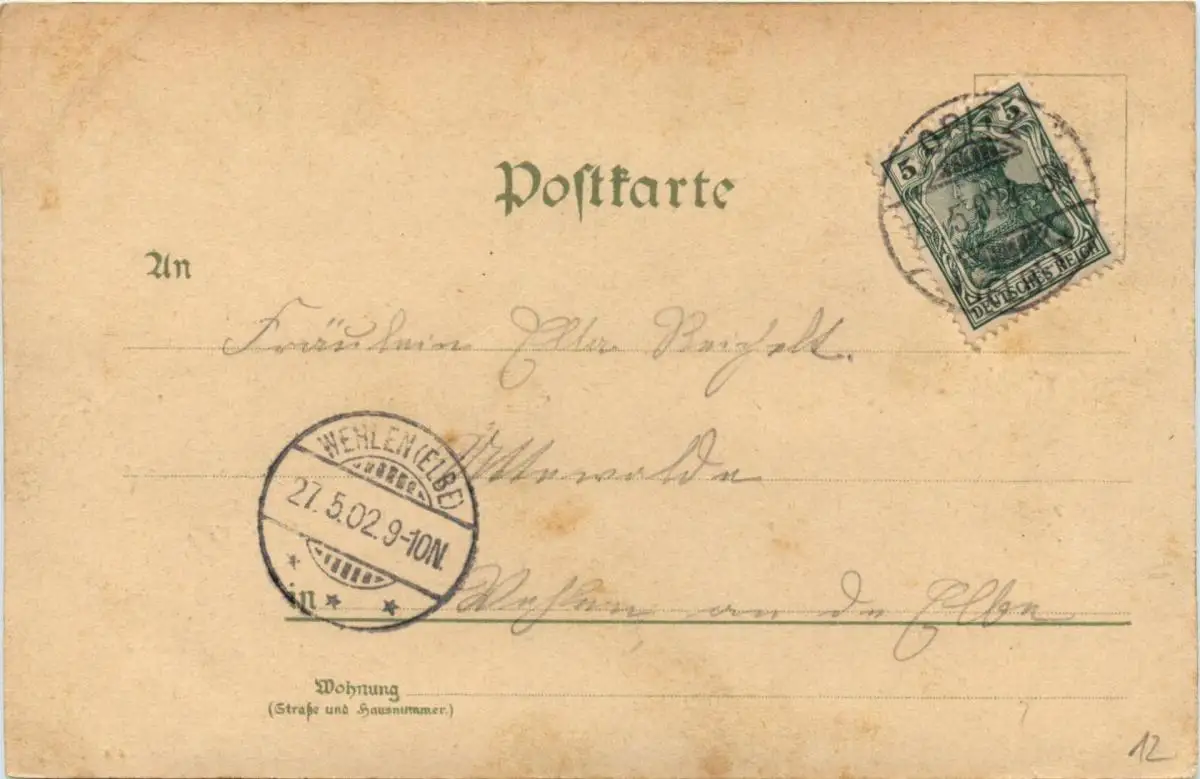 Postkarte
5 5
DEUTSCHES REICH
An
Fräulein Ella Reichelt.
Uttewalde
WEHLEN (ELBE)
27.5.02.9-10N.
in Wehlen an de Elbe
Wohnung
(Straße und Hausnummer.)
12